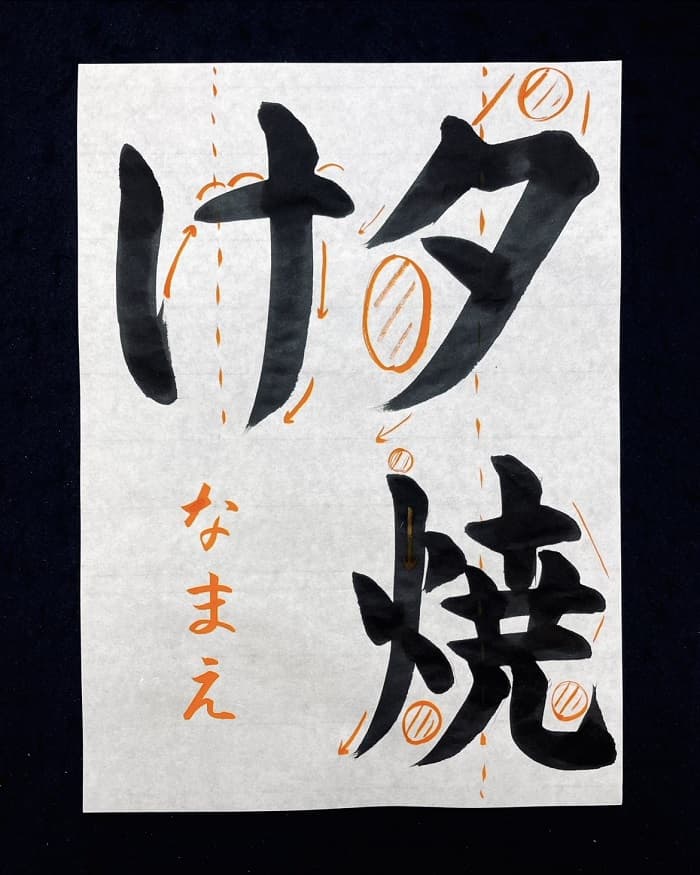 夕焼
け
なまえ